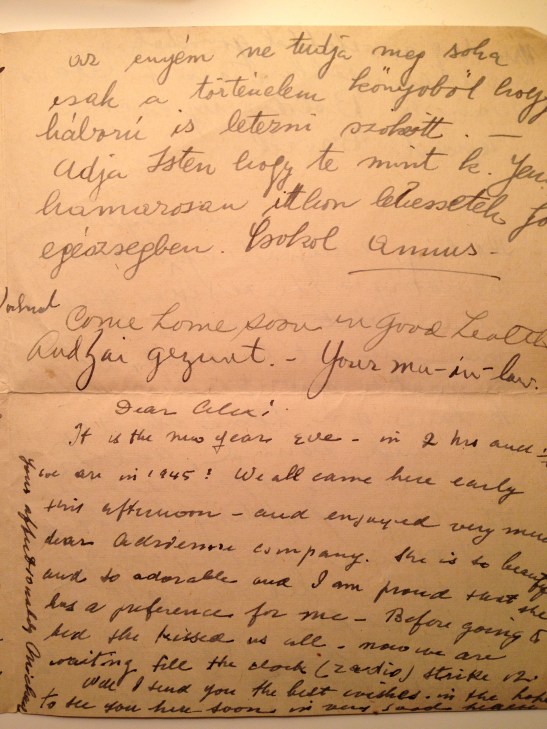 az enyém ne tudja meg soha
csak a történelem könyvöböl hogy
háború is letezni szokott. —
Adja Isten hogy te mint k. Jen
hamarosan itthon lehessetek jó
egészségben. Csokol Annus -
Come home soon in good health
Und zai gezunt. - Your ma-in-law.
Dear Alex!
It is the new years eve - in 2 hrs and
we are in 1945! We all came here early
this afternoon - and enjoyed very much
dear Adrienne company. She is so beautiful
and so adorable and I am proud that she
has a preference for me - Before going to
bed she kissed us all - now we are
waiting till the clock (radio) strike 12.
Well I send you the best wishes - in the hope
to see you here soon in very good health
Your affectionately